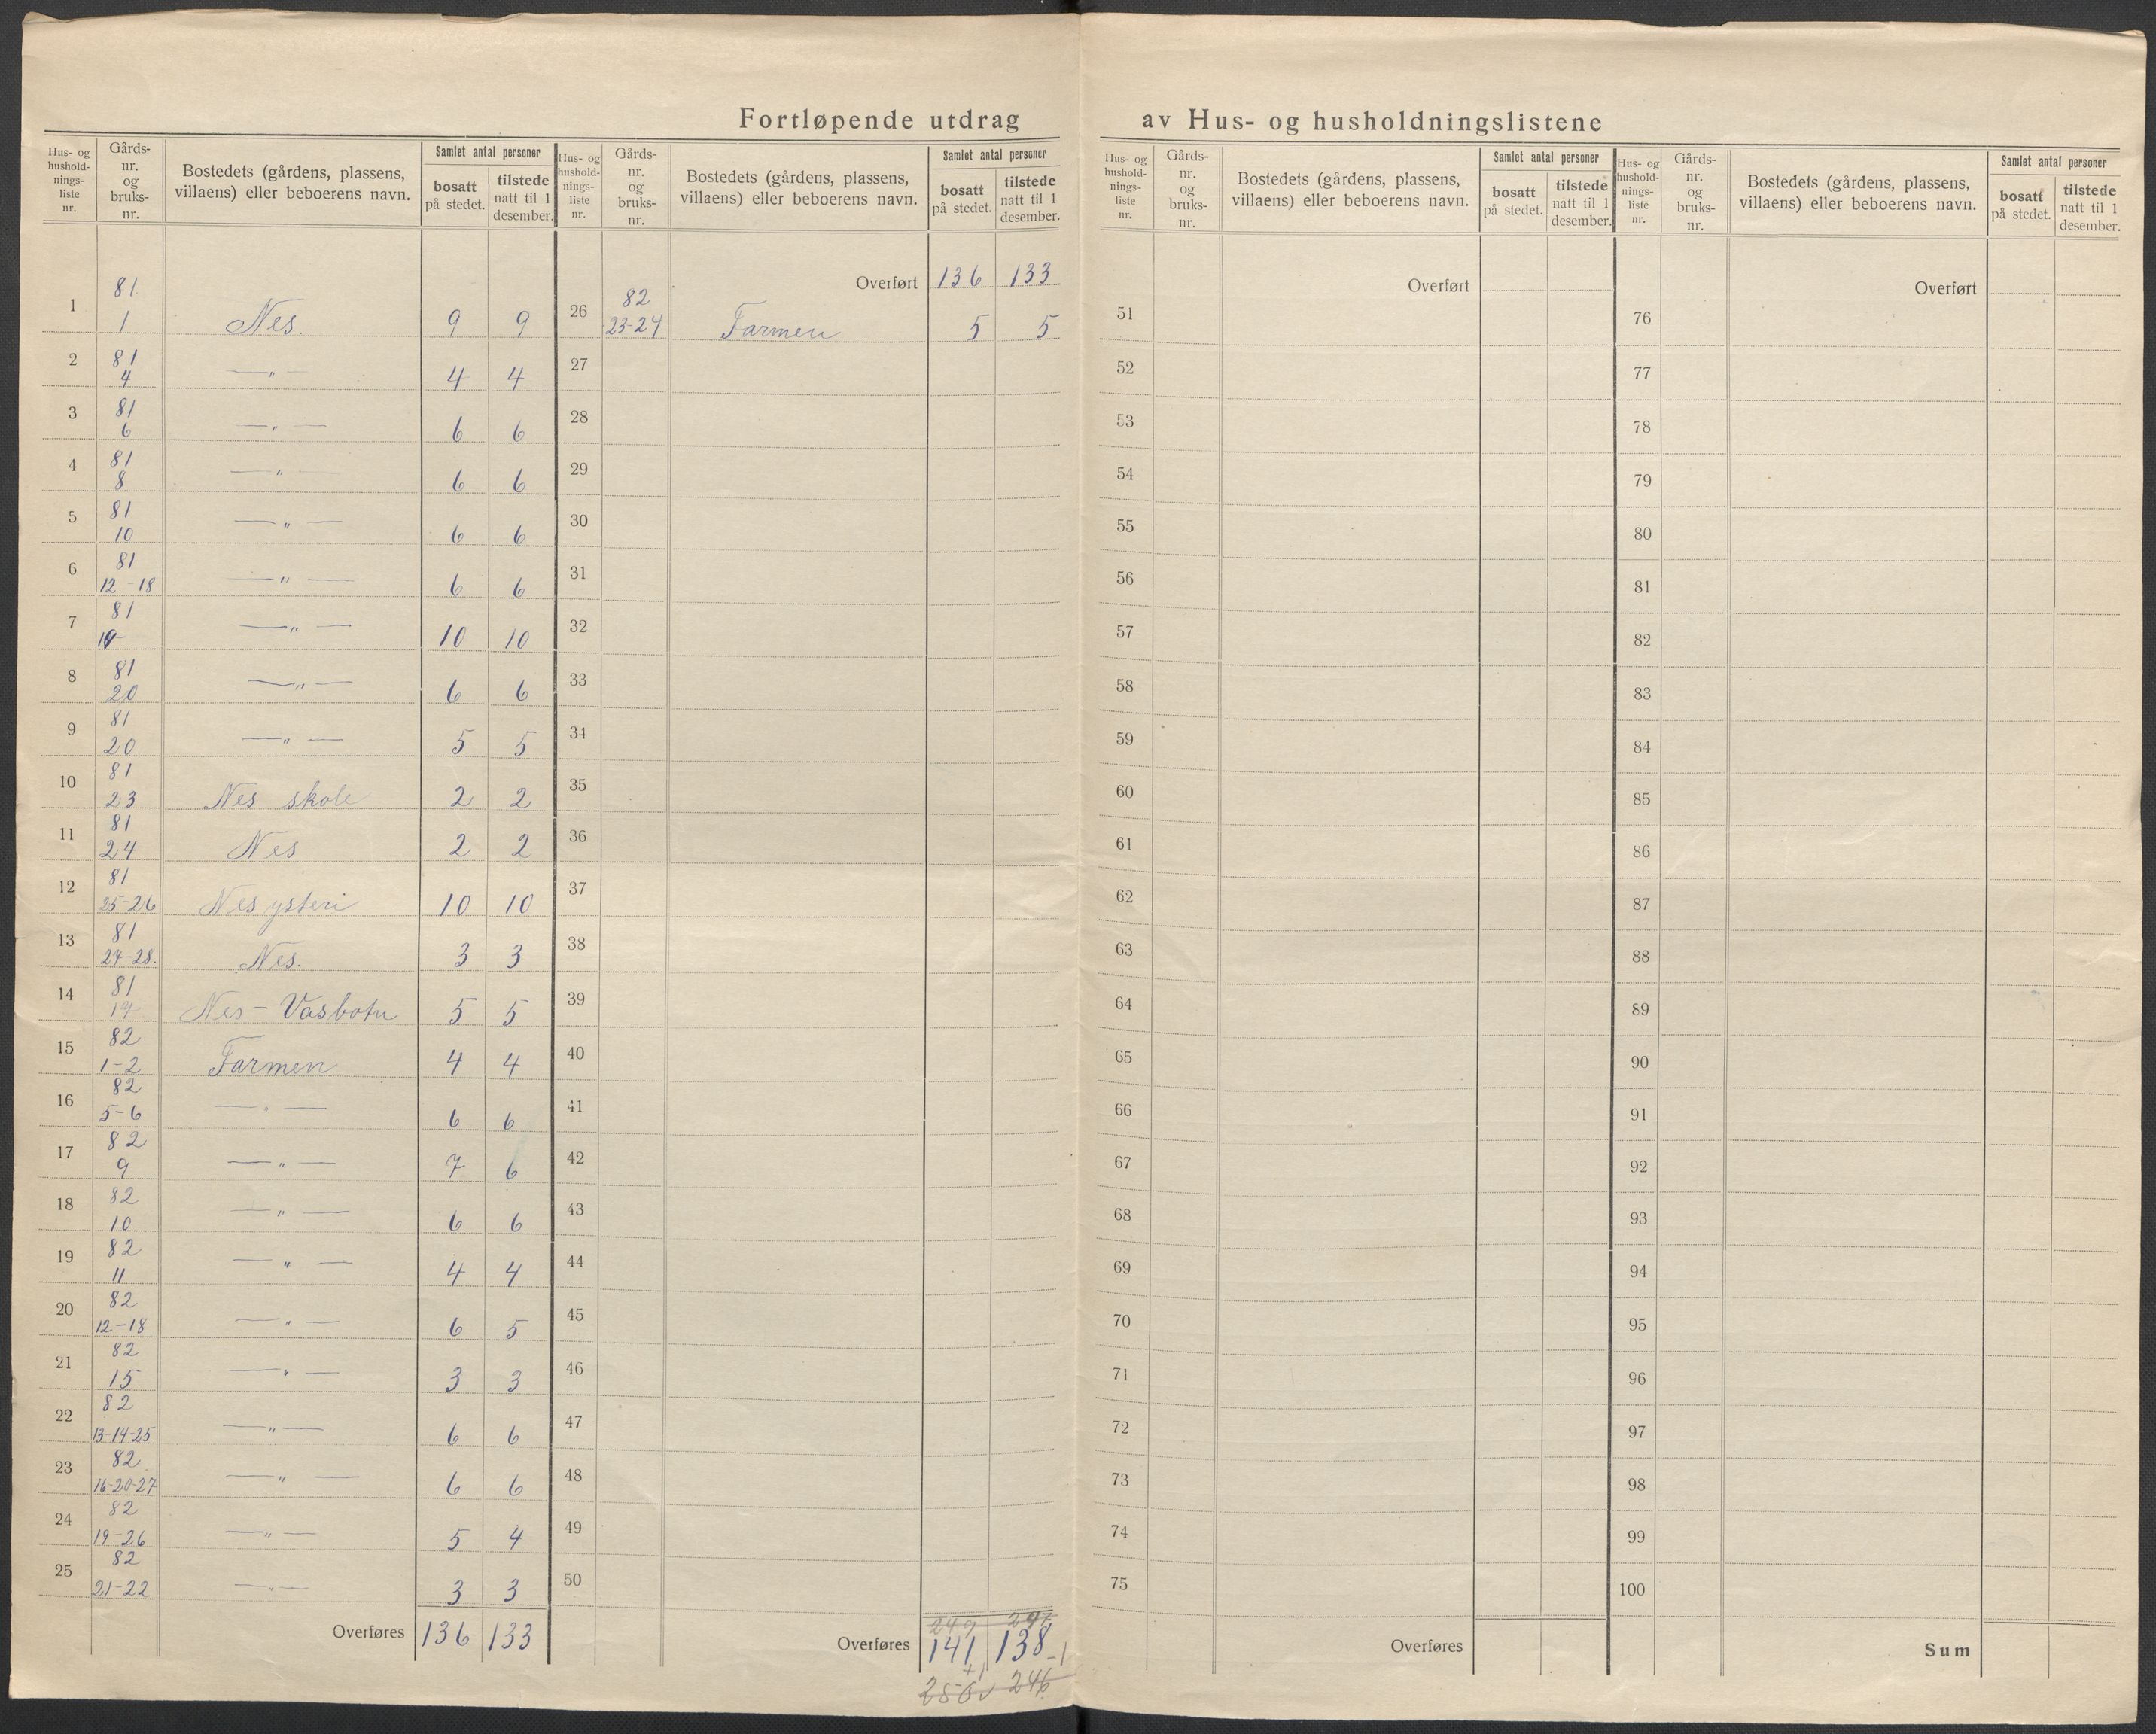 Fortløpende utdrag av Hus- og husholdningslistene
Hus- og hushold-nings-liste nr. Gårds-nr. og bruks-nr. Bostedets (gårdens, plassens, villaens) eller beboerens navn. Samlet antal personer bosatt på stedet. tilstede natt til 1 desember.
1 81 1 Nes. 9 9
2 81 4 —„— 4 4
3 81 6 —„— 6 6
4 81 8 —„— 6 6
5 81 10 —„— 6 6
6 81 12-18 —„— 6 6
7 81 —„— 10 10
8 81 20 —„— 6 6
9 81 20 —„— 5 5
10 81 23 Nes skole 2 2
11 81 24 Nes 2 2
12 81 25-26 Nes ysteri 10 10
13 81 27-28. Nes. 3 3
14 81 Nes - Vasbotn 5 5
15 82 1-2 Farmen 4 4
16 82 5-6 —„— 6 6
17 82 9 —„— 7 6
18 82 10 —„— 6 6
19 82 11 —„— 4 4
20 82 12-18 —„— 6 5
21 82 15 —„— 3 3
22 82 13-14-25 —„— 6 6
23 82 16-20-27 —„— 6 6
24 82 19-26 —„— 5 4
25 82 21-22 —„— 3 3
Overføres 136 133
Hus- og hushold-nings-liste nr. Gårds-nr. og bruks-nr. Bostedets (gårdens, plassens, villaens) eller beboerens navn. Samlet antal personer bosatt på stedet. tilstede natt til 1 desember.
Overført 136 133
26 82 23-24 Farmen 5 5
27
28
29
30
31
32
33
34
35
36
37
38
39
40
41
42
43
44
45
46
47
48
49
50
249 247
Overføres 141 138
+1 -1
250 246
Hus- og hushold-nings-liste nr. Gårds-nr. og bruks-nr. Bostedets (gårdens, plassens, villaens) eller beboerens navn. Samlet antal personer bosatt på stedet. tilstede natt til 1 desember.
Overført
51
52
53
54
55
56
57
58
59
60
61
62
63
64
65
66
67
68
69
70
71
72
73
74
75
Overføres
Hus- og hushold-nings-liste nr. Gårds-nr. og bruks-nr. Bostedets (gårdens, plassens, villaens) eller beboerens navn. Samlet antal personer bosatt på stedet. tilstede natt til 1 desember.
Overført
76
77
78
79
80
81
82
83
84
85
86
87
88
89
90
91
92
93
94
95
96
97
98
99
100
Sum